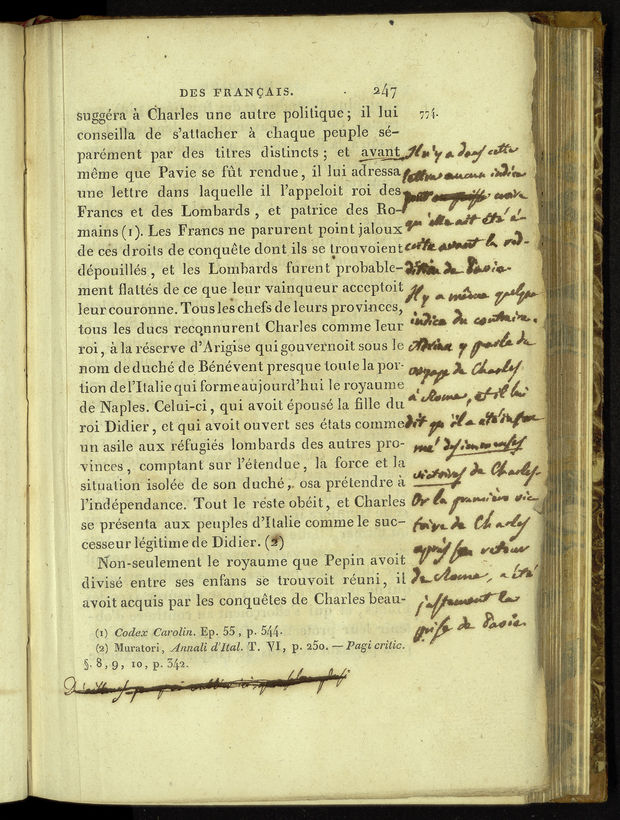 DES FRANÇAIS. 247
suggéra à Charles une autre politique ; il lui
conseilla de s'attacher à chaque peuple sé-
parément par des titres distincts ; et avant
même que Pavie se fût rendue, il lui adressa
une lettre dans laquelle il l'appeloit roi des
Francs et des Lombards, et patrice des Ro-
mains (1). Les Francs ne parurent point jaloux
de ces droits de conquête dont ils se trouvoient
dépouillés, et les Lombards furent probable-
ment flattés de ce que leur vainqueur acceptoit
leur couronne. Tous les chefs de leurs provinces,
tous les ducs reconnurent Charles comme leur
roi, à la réserve d'Arigise qui gouvernoit sous le
nom de duché de Bénévent presque toute la por-
tion de l'Italie qui forme aujourd'hui le royaume
de Naples. Celui-ci, qui avoit épousé la fille du
roi Didier, et qui avoit ouvert ses états comme
un asile aux réfugiés lombards des autres pro-
vinces, comptant sur l'étendue, la force et la
situation isolée de son duché, osa prétendre à
l'indépendance. Tout le reste obéit, et Charles
se présenta aux peuples d'Italie comme le suc-
cesseur légitime de Didier. (2)
Non-seulement le royaume que Pepin avoit
divisé entre ses enfans se trouvoit réuni, il
avoit acquis par les conquêtes de Charles beau-
(1) Codex Carolin. Ep. 55, p. 544.
(2) Muratori, Annali d'Ital. T. VI, p. 250. — Pagi critic.
§. 8, 9, 10, p. 342.
774.
Il n'y a dans cette
lettre aucun indice
croire
qu'elle ait été é-
crite avant la red-
dition de Pavie.
Il y a même quelque
indice du contraire.
Adrien y parle du
voyage de Charles
à Rome, et il lui
dit qu'il a été infor
mé des immenses
victoires de Charles.
Or la première vic
toire de Charles
après son retour
de Rome, a été
justement la
prise de Pavie.